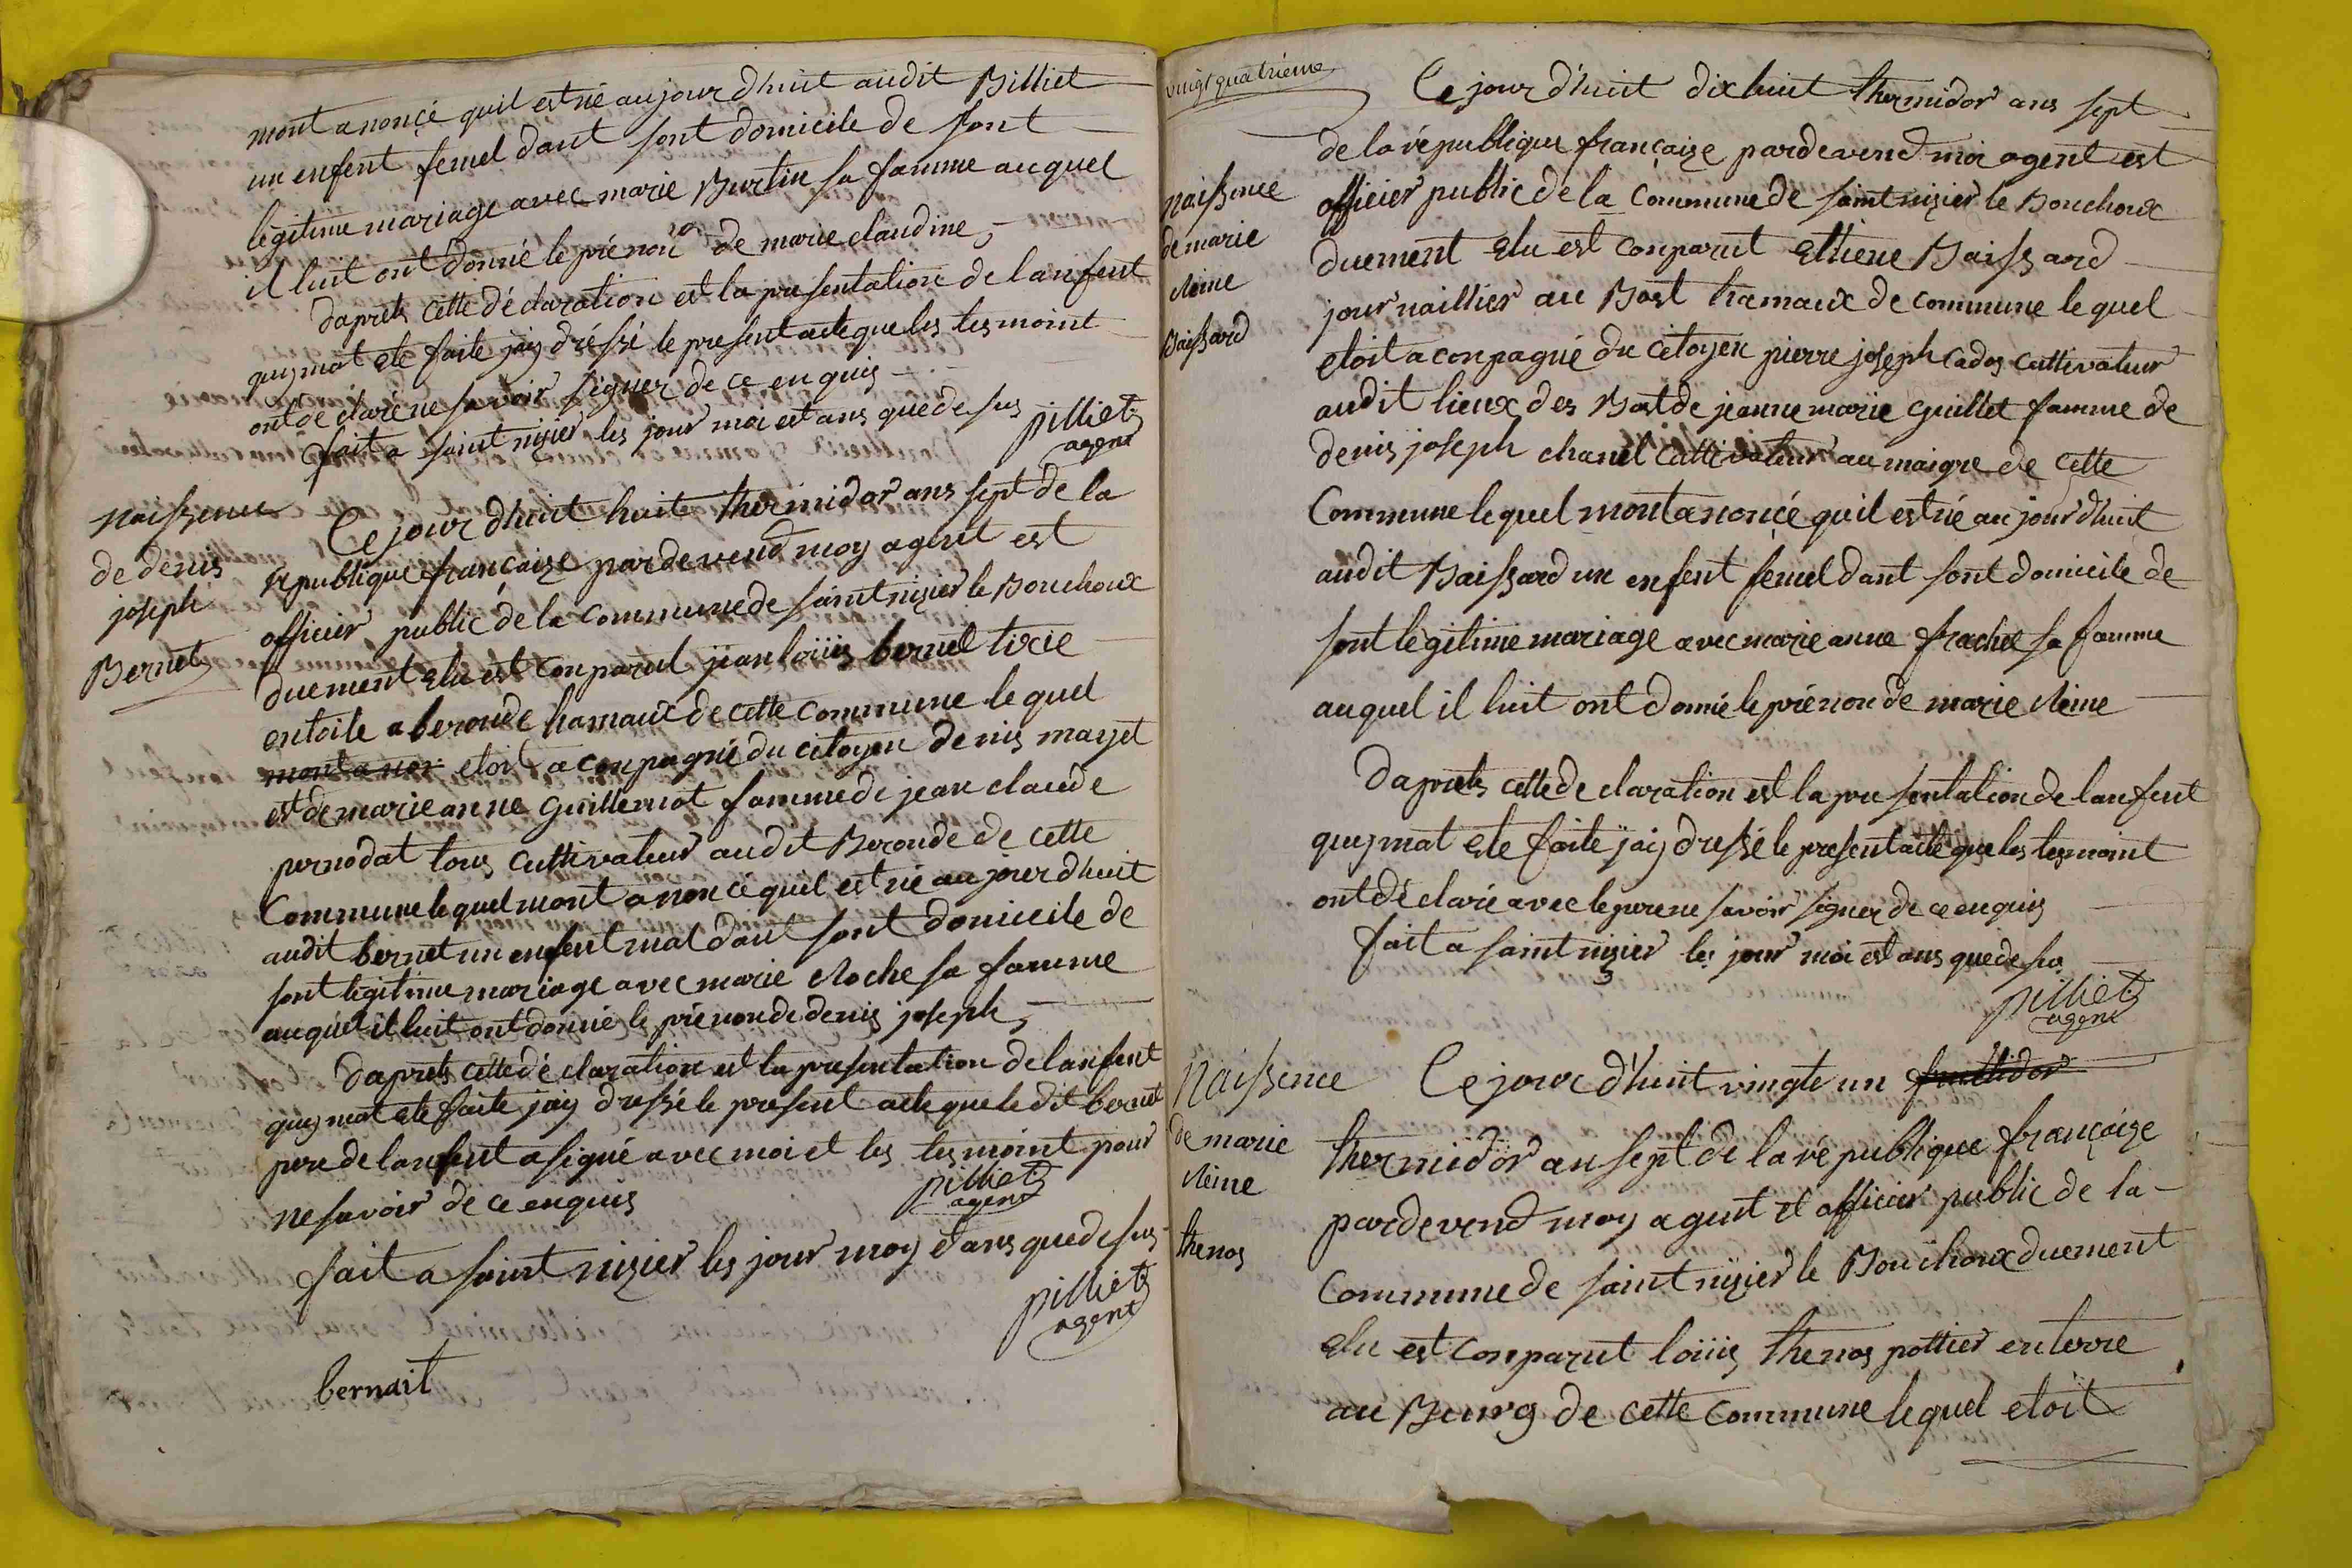 mont anoncé quil est né au jour dhuit audit Billiet
un enfent femel dant sont domicile de sont
légitime mariage avec marie Burtin sa famme auquel
il luit ont donné le prénon de marie claudine,
daprets cette dé claration est la presentation de lanfent
quy mat ete faite jay dréssé le present acte que les tesmoint
ont dé claré ne savoir signer de ce enquis
fait a saint nizier les jour moi est ans que desus
pilliet
agent
naissence
de denis
joseph
Bernet
Ce jour dhuit huite thermidor ans sept de la
république françaize pardevend moy agent est
officier public de la commune de saint nizier le Bouchoux
duement elu est conparut jean loüis bernet tixie
entoile a beronde hamaux de cette commune le quel
mont a non etoit a conpagné du citoyen denis mayet
est de marie anne guillemot famme de jean claude
pernodat tous cultivateur audit Beronde de cette
Commune lequel mont anoncé quil est né au jour dhuit
audit bernet un enfent mal dant sont domicile de
sont légitime mariage avec marie cloche sa famme
auquel il luit ont donné le prénon de denis joseph,
daprets cette dé claration est la presentation de lanfent
quy mat ete faite jay dressé le present acte que ledit bernet
pere de lanfent a signé avec moi et les tesmoint pour
ne savoir de ce enquis
pilliet
agent
fait a saint nizier les jour moy et ans que desus
pilliet
agent
bernait
vingt quatriéme
naissence
de marie
cleine
Baissard
Ce jour d'huit dix huit thermidor ans sept
de la république françaize pardevend moi agent est
officier public de la Commune de saint nizier le Bouchoux
duement elu est conparut ettiene Baissard
journaillier au Bost hamaux de commune le quel
etoit a conpagné du citoyen pierre joseph cados cultivateur
audit lieux des Bost de jeanne marie guillet famme de
denis joseph chanel cultivateur au maigre de cette
Commune lequel mont anoncé quil est né au jour d'huit
audit Baissard un enfent femel dant sont domicile de
sont légitime mariage avec marie anne frachet sa famme
auquel il luit ont donné le prénon de marie cleine
daprets cette de claration est la presentation de lanfent
quy mat ete faite jay dressé le present acte que les tesmoint
ont dé claré avec le pere ne savoir signer de ce enquis
fait a saint nizier les jour moi est ans que desus
pilliet
agent
naissence
de marie
cleine
thenos
Ce jour d'huit vingte un fructidor
thermidor an sept de la république françaize
pardevend moy agent et officier public de la
Commune de saint nizier le Bouchoux duement
elu est conparut loüis thenos pottier en terre
au Bourg de cette commune le quel etoit